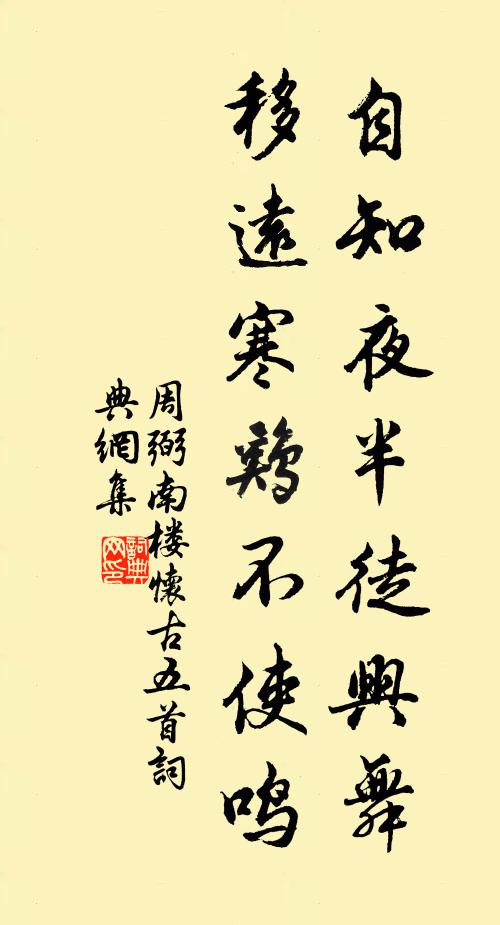 自知夜半徒興舞
移遠寒鷄不使鸣
周弼南楼懷古五首詞
典網集
詞典
网印